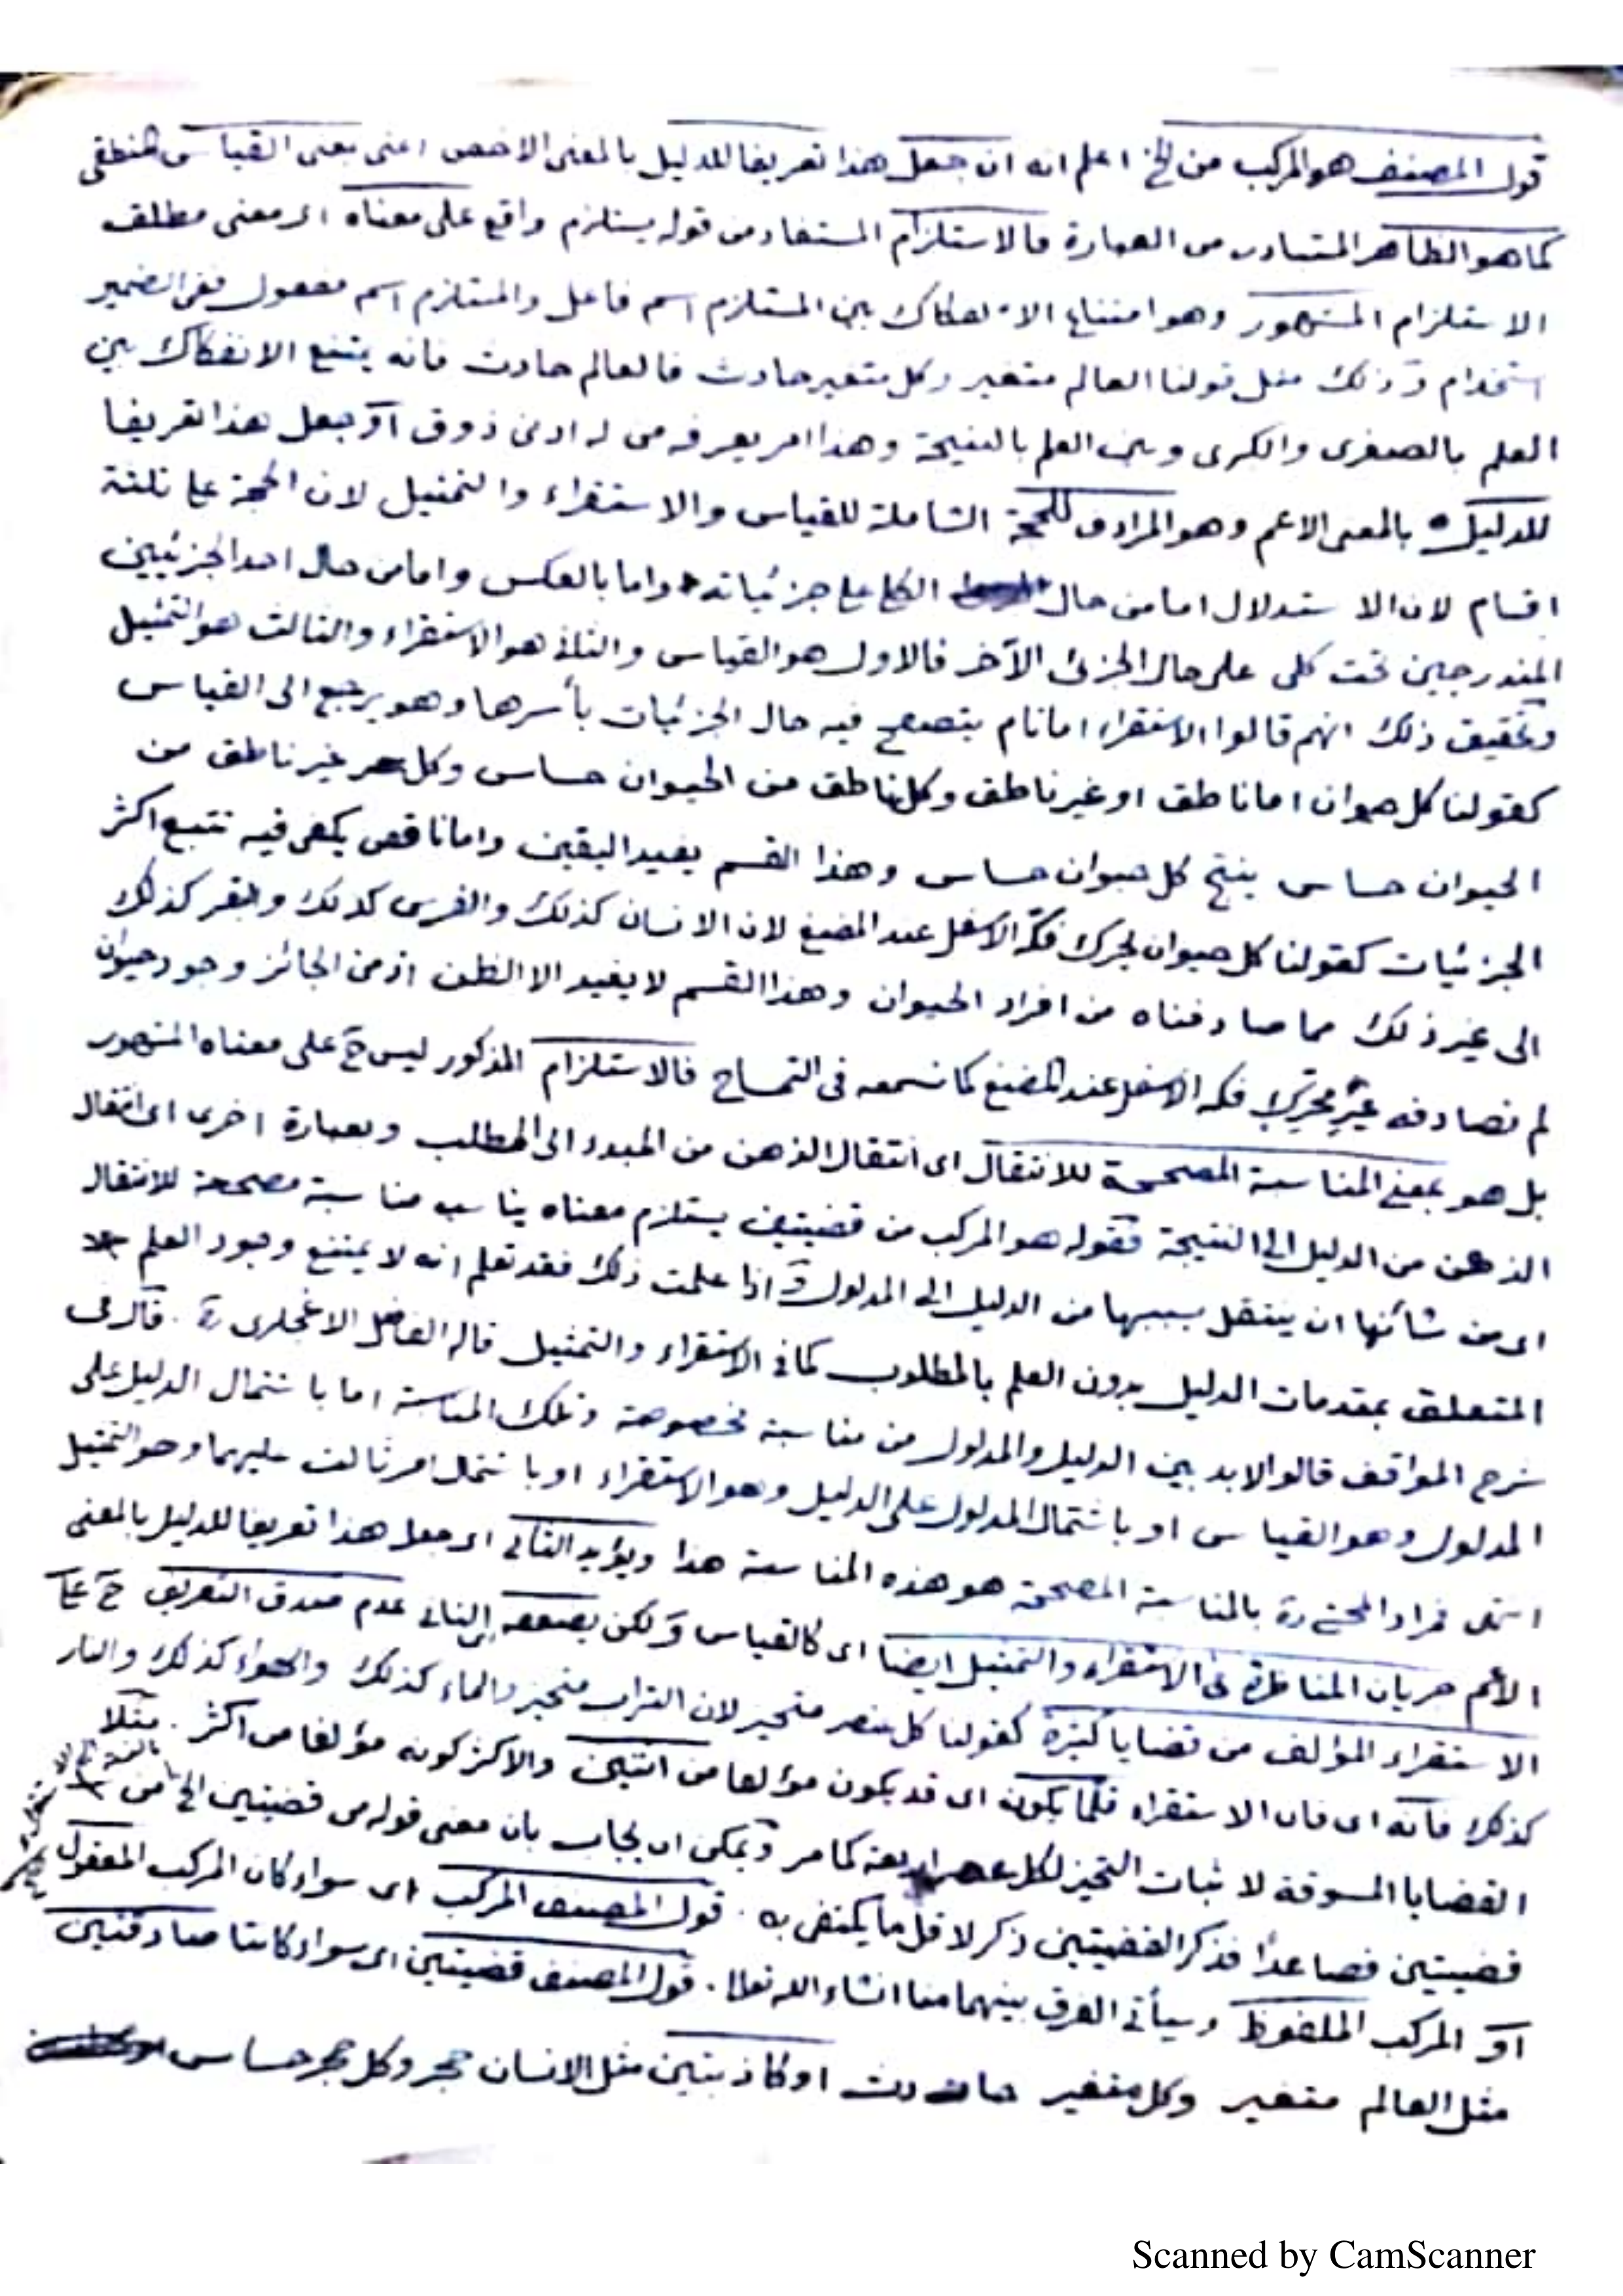 قول المصنف هو المركب من الخ اعلم انه ان جعل هذا تعريفا للدليل بالمعنى الاخص اعنى بمعنى القياس المنطقى
كما هو الظاهر المتبادر من العبارة فالاستلزام المستفاد من قوله يستلزم واقع على معناه اى معنى مطلق
الاستلزام المشهور وهو امتناع الانفكاك بين المستلزم اسم فاعل والمستلزم اسم مفعول ففى الضمير
استخدام وذلك مثل قولنا العالم متغير وكل متغير حادث فالعالم حادث فانه يمتنع الانفكاك بين
العلم بالصغرى والكبرى وبين العلم بالنتيجة وهذا امر يعرفه من له ادنى ذوق او جعل هذا تعريفا
للدليل بالمعنى الاعم وهو المرادف للحجة الشاملة للقياس والاستقراء والتمثيل لان الحجة على ثلثة
اقسام لان الاستدلال اما من حال الكلى على جزئياته واما بالعكس واما من حال احد الجزئيين
المندرجين تحت كلى على حال الجزئ الآخر فالاول هو القياس والثانى هو الاستقراء والثالث هو التمثيل
وتحقيق ذلك انهم قالوا الاستقراء اما تام يتصفح فيه حال الجزئيات بأسرها وهو يرجع الى القياس
كقولنا كل حيوان اما ناطق او غير ناطق وكل ناطق من الحيوان حساس وكل غير ناطق من
الحيوان حساس ينتج كل حيوان حساس وهذا القسم يفيد اليقين واما ناقص يكفى فيه تتبع اكثر
الجزئيات كقولنا كل حيوان يحرك فكه الاسفل عند المضغ لان الانسان كذلك والفرس كذلك والبقر كذلك
الى غير ذلك مما صادفناه من افراد الحيوان وهذا القسم لا يفيد الا الظن اذ من الجائز وجود حيوان
لم نصادفه غير محرك فكه الاسفل عند المضغ كما نسمعه فى التمساح فالاستلزام المذكور ليس ح على معناه المشهور
بل هو بمعنى المناسبة المصححة للانتقال اى انتقال الذهن من المبدء الى المطلب وبعبارة اخرى اى انتقال
الذهن من الدليل الى النتيجة فقوله هو المركب من قضيتين يستلزم معناه يناسب مناسبة مصححة للانتقال
اى من شأنها ان ينتقل بسببها من الدليل الى المدلول واذا علمت ذلك فقد تعلم انه لا يمتنع وجود العلم
المتعلق بمقدمات الدليل بدون العلم بالمطلوب كما فى الاستقراء والتمثيل قاله الفاضل ره . قال فى
شرح المواقف قالوا لابد بين الدليل والمدلول من مناسبة مخصوصة وتلك المناسبة اما باشتمال الدليل على
المدلول وهو القياس او باشتمال المدلول على الدليل وهو الاستقراء او باشتمال امر ثالث عليهما وهو التمثيل
انتهى فمراد المحشى ره بالمناسبة المصححة هو هذه المناسبة هذا ويؤيد الثانى اى جعل هذا تعريفا للدليل بالمعنى
الاعم جريان المناظرة فى الاستقراء والتمثيل ايضا اى كالقياس ولكن يضعفه اى الثانى عدم صدق التعريف ح على
الاستقراء المؤلف من قضايا كثيرة كقولنا كل عنصر متحيز لان التراب متحيز والماء كذلك والهواء كذلك والنار
كذلك فانه اى فان الاستقراء قلما يكون اى قد يكون مؤلفا من اثنين والاكثر كونه مؤلفا من اكثر . مثلا
القضايا المسوقة لاثبات التحيز لكل عنصر اربعة كما مر ويمكن ان يجاب بان معنى قوله من قضيتين الخ من
قضيتين فصاعدًا فذكر القضيتين ذكر لاقل ما يكتفى به . قول المصنف المركب اى سواء كان المركب المعقول
او المركب الملفوظ وسيأتى الفرق بينهما انشاء الله تعالى . قول المصنف قضيتين اى سواء كانتا صادقتين
مثل العالم متغير وكل متغير حادث او كاذبتين مثل الانسان حجر وكل حجر حساس
Scanned by CamScanner